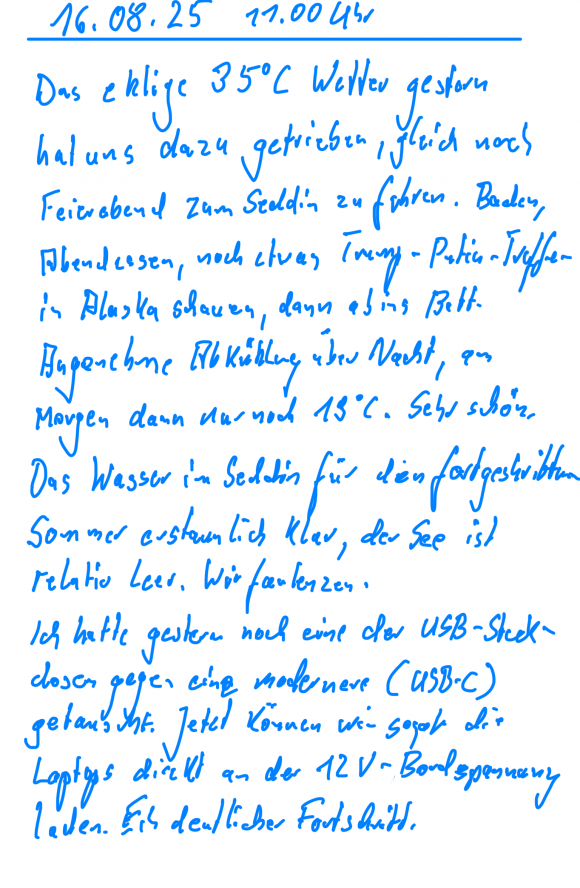 16.08.25 11.00 Uhr
Das eklige 35°C Wetter gestern
hat uns dazu getrieben, gleich nach
Feierabend zum Seddin zu fahren. Baden,
Abendessen, noch etwas Trump-Putin-Treffen
in Alaska schauen, dann ab ins Bett.
Angenehme Abkühlung über Nacht, am
Morgen dann nur noch 13°C. Sehr schön.
Das Wasser im Seddin für den fortgeschrittenen
Sommer erstaunlich klar, der See ist
relativ leer. Wir faulenzen.
Ich hatte gestern noch eine der USB-Steck-
dosen gegen eine modernere (USB-C)
getauscht. Jetzt können wir sogar die
Laptops direkt an der 12V-Bordspannung
laden. Ein deutlicher Fortschritt.